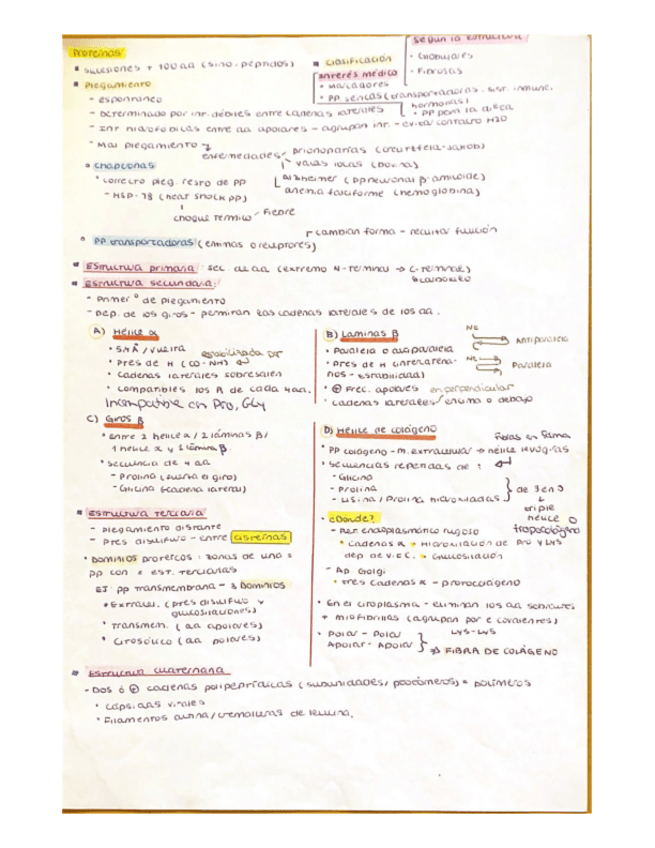 Proteínas
▪ sucesiones + 100 aa (sino - péptidos)
▪ Plegamiento
- espontáneo
- Determinado por inr. débiles entre cadenas laterales
- Inr hidrofóbicas entre aa apolares - agrupan inr. - evitar contacto H2O
- Mal plegamiento
enfermedades
prionoparías (Creutzfeld-Jakob)
vacas locas (bovina)
Alzheimer (PP neuronal β-amiloide)
anemia falciforme (hemoglobina)
▪ Clasificación
Según la estructura
- Globulares
- Fibrosas
interés médico
• Marcadores
• PP séricas (transportadoras. sist. inmune.
hormonas)
• PP para la
• Chaplonas
• correcto pleg. resto de PP
- HSP-78 (hear shock PP)
choque térmico - Fiebre
• PP transportadoras (enzimas o receptores)
cambian forma - función
▪ Estructura primaria: sec. de aa (extremo N-terminal → C-terminal)
▪ Estructura secundaria:
- Primer º de plegamiento
- Dep. de los giros - permitan las cadenas laterales de los aa.
A) Hélice α
• 5,4 Å / vuelta
estabilizada por
• Ptes de H (CO-NH)
• Cadenas laterales sobresalen
• Compatibles los R de cada 4 aa.
Incompatible con Pro, Gly
B) Láminas β
• Paralela o antiparalela
• Ptes de H
• ⊕ Frec. apolares en perpendicular
• cadenas laterales / encima o debajo
Antiparalela
Paralela
C) Giros β
• entre 2 hélice α / 2 láminas β /
1 hélice α y 1 lámina β.
• Secuencia de 4 aa
- Prolina (fuerza el giro)
- Glicina (cadena lateral)
D) Hélice de colágeno
• PP colágeno - m. extracelular → hélice levógiras
• Secuencias repetidas de:
- Glicina
- Prolina
- Lisina / Prolina hidroxiladas
de 3 en 3
↓
triple
hélice o
tropocolágeno
▪ Estructura terciaria
- plegamiento distante
- Ptes disulfuro - entre cisteínas
• Dominios proteicos: zonas de una =
PP con ≠ est. terciarias
EJ: PP transmembrana - 3 Dominios
• Extracel. (Ptes disulfuro y
glucosilaciones)
• Transmem. (aa apolares)
• Citosólico (aa polares)
- ¿Dónde?
- Ret. endoplasmático rugoso
• Cadenas α → Hidroxilación de Pro y Lys
dep. de vit C. → Glucosilación
- Ap Golgi
• tres cadenas α - protocolágeno
• En el citoplasma - eliminan los aa sobrantes
+ miofibrillas (agrupan por e covalentes)
Lys-Lys
• Polar - Polar
Apolar - Apolar
⇒ FIBRA DE COLÁGENO
▪ Estructura cuaternaria
- Dos ó ⊕ cadenas polipeptídicas (subunidades / protómeros) = polímeros
• Cápsidas virales
• Filamentos actina / cremalleras de leucina.